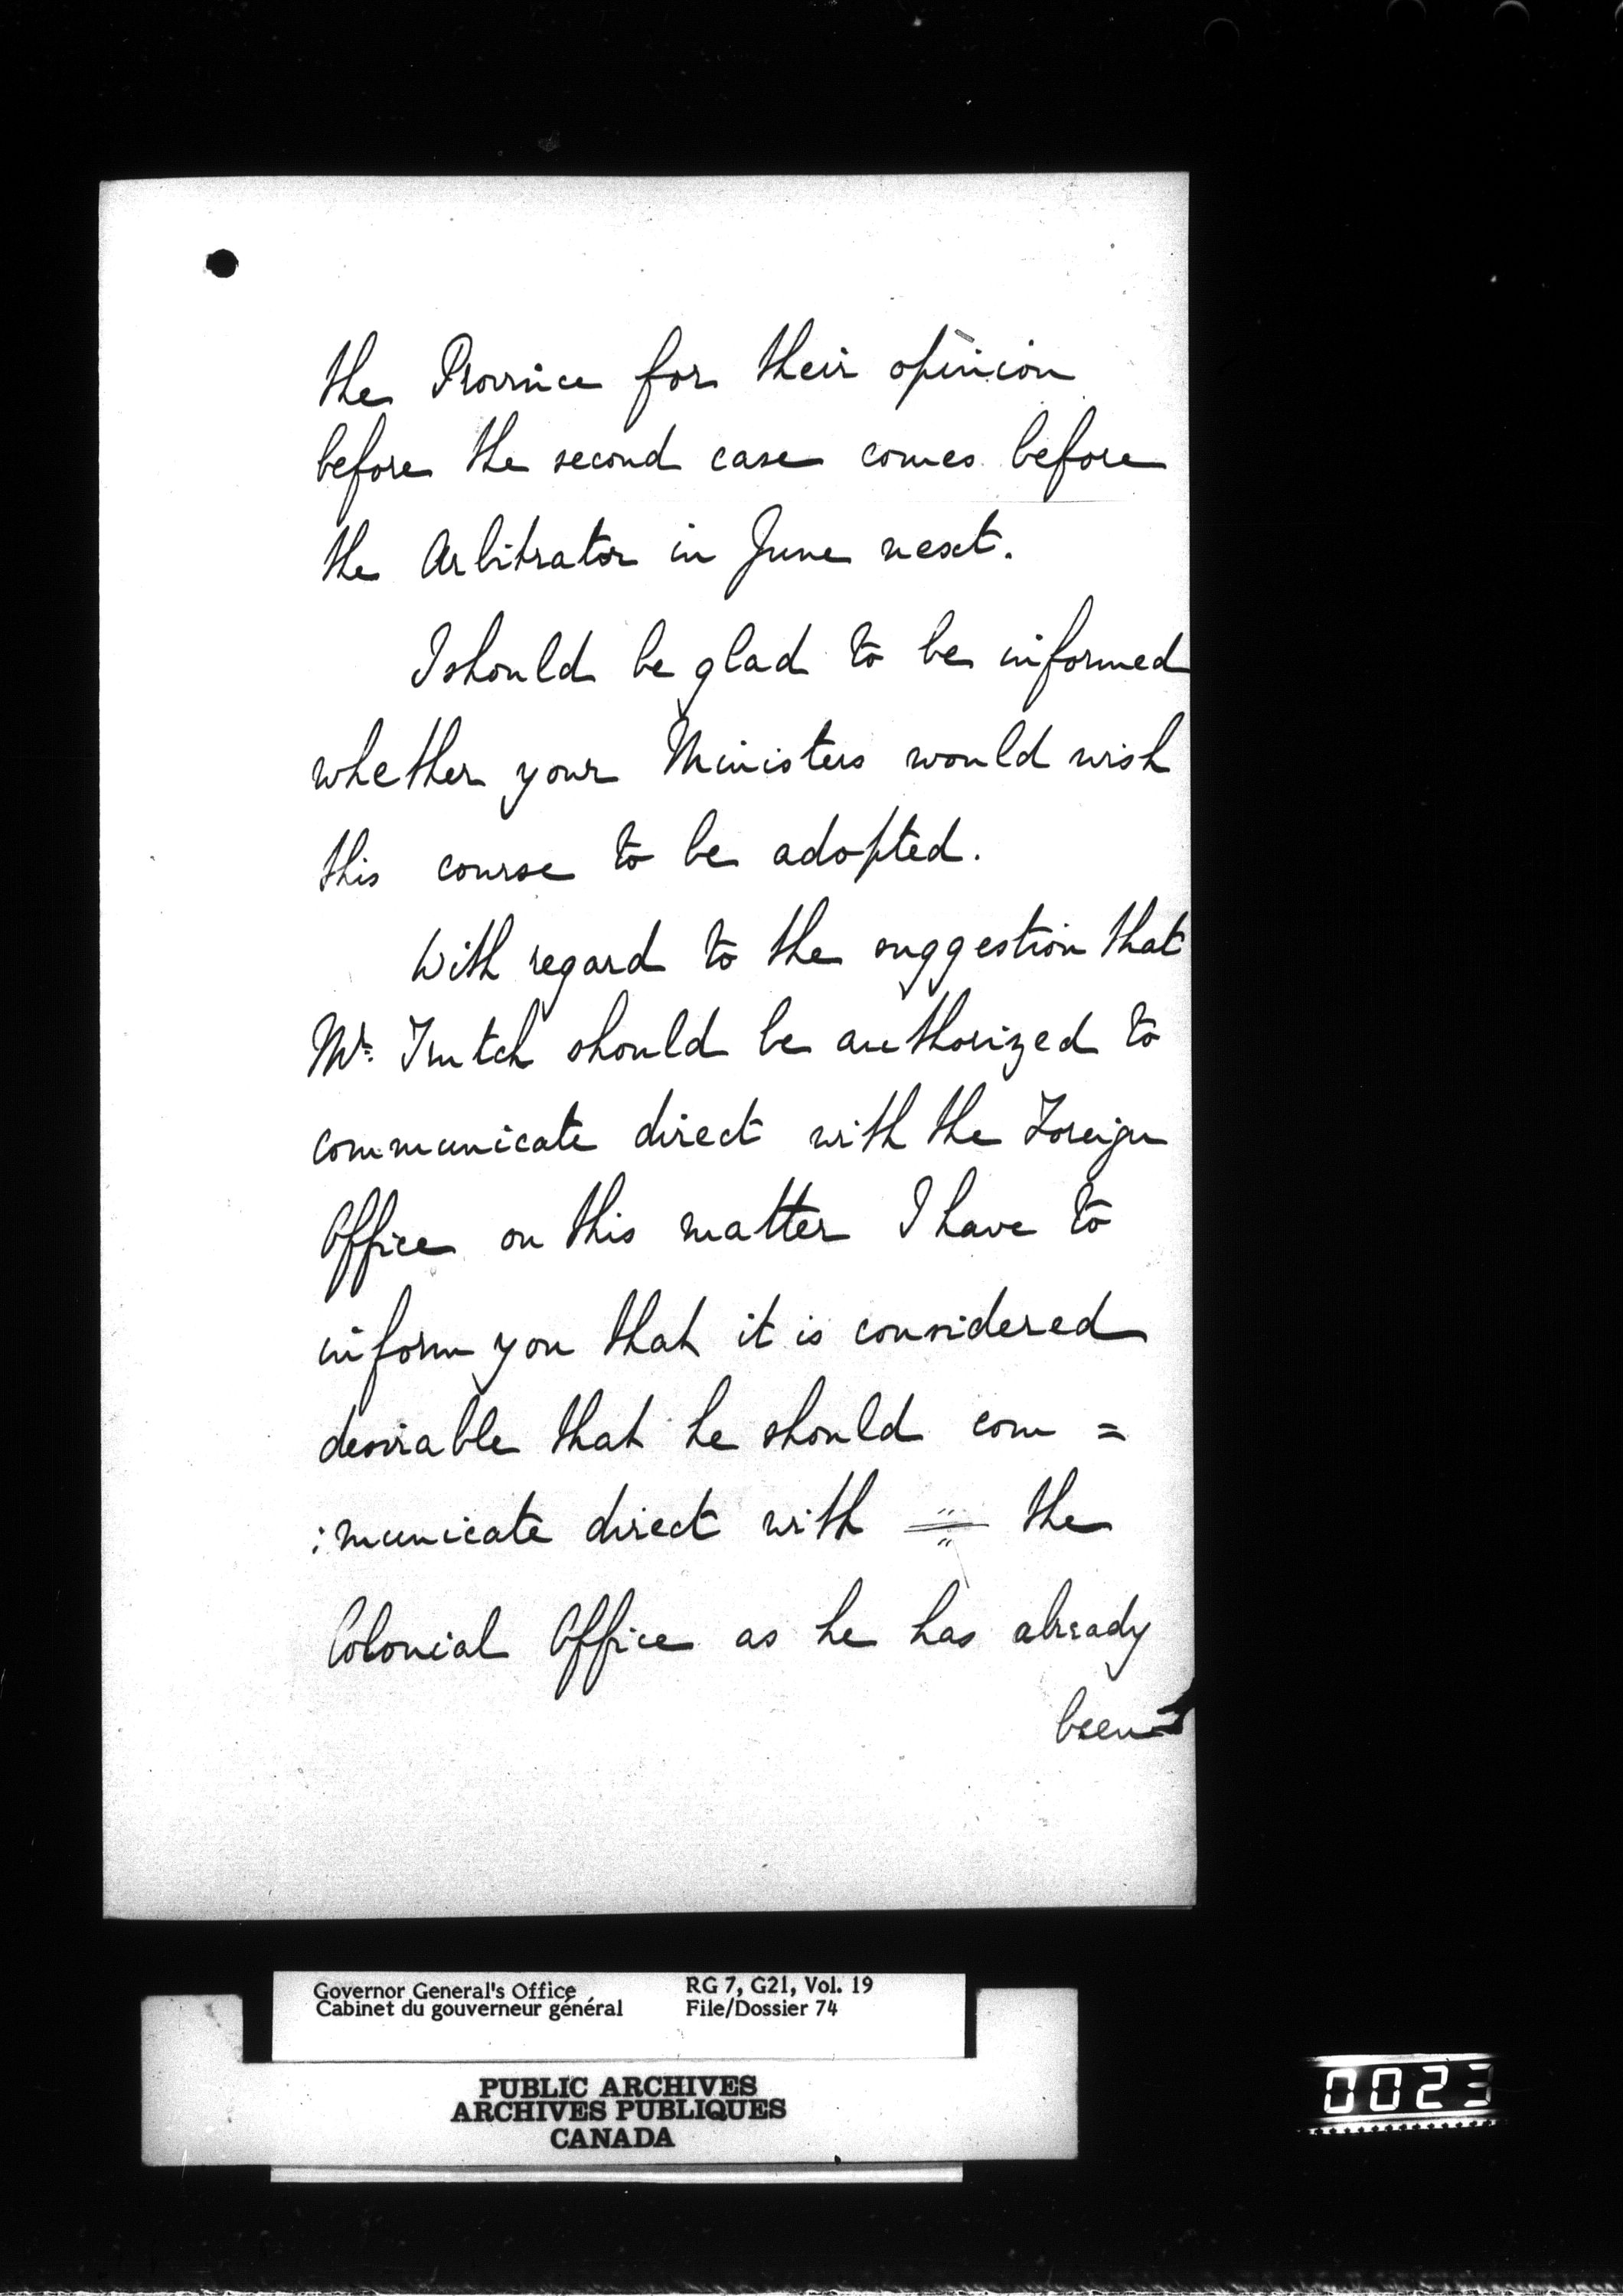 the Province for their opinion
before the second case comes before
the Arbitrator in June next.
I should be glad to be informed
whether your Ministers would wish
this course to be adopted.
With regard to the suggestion that
Mr. Trutch should be authorized to
communicate direct with the Foreign
Office on this matter I have to
inform you that it is considered
desirable that he should com =
:municate direct with the
Colonial Office as he has already
been
Governor General's Office
Cabinet du gouverneur général
RG 7, G21, Vol. 19
File/Dossier 74
PUBLIC ARCHIVES
ARCHIVES PUBLIQUES
CANADA
0023